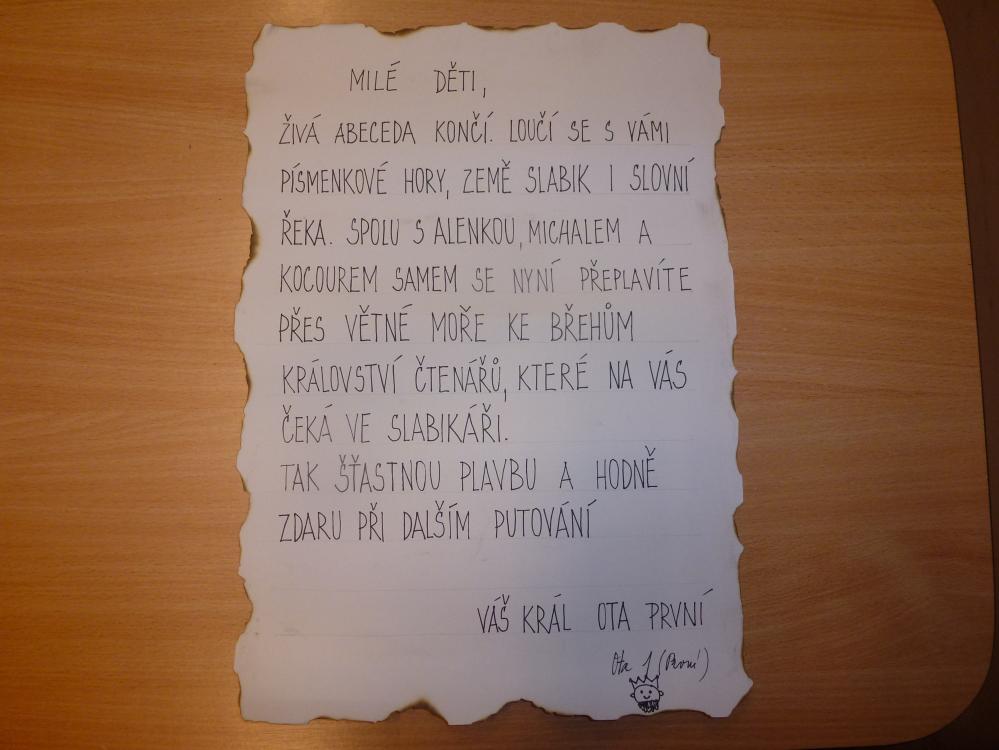 MILÉ DĚTI,
ŽIVÁ ABECEDA KONČÍ. LOUČÍ SE S VÁMI
PÍSMENKOVÉ HORY, ZEMĚ SLABIK I SLOVNÍ
ŘEKA. SPOLU S ALENKOU, MICHALEM A
KOCOUREM SAMEM SE NYNÍ PŘEPLAVÍTE
PŘES VĚTNÉ MOŘE KE BŘEHŮM
KRÁLOVSTVÍ ČTENÁŘŮ, KTERÉ NA VÁS
ČEKÁ VE SLABIKÁŘI.
TAK ŠŤASTNOU PLAVBU A HODNĚ
ZDARU PŘI DALŠÍM PUTOVÁNÍ
VÁŠ KRÁL OTA PRVNÍ
Ota 1 (První)